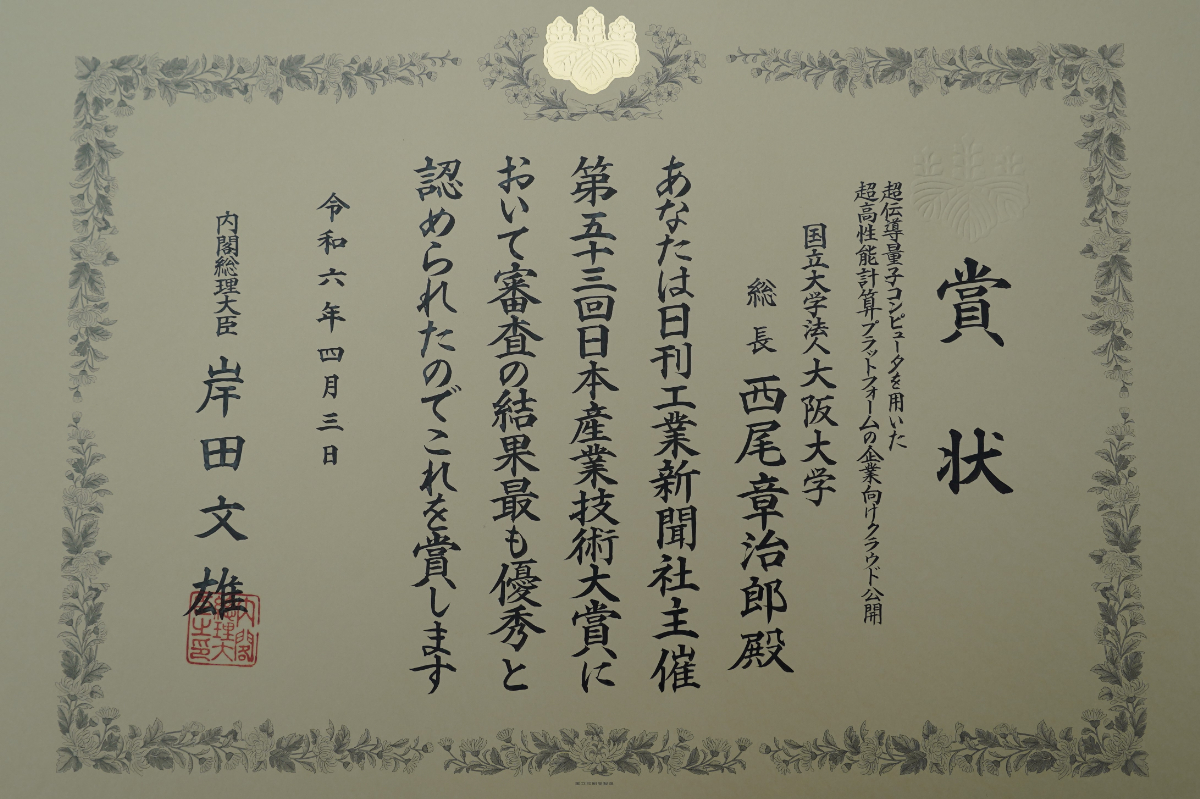 賞状
超伝導量子コンピュータを用いた
超高性能計算プラットフォームの企業向けクラウド公開
国立大学法人大阪大学
総長 西尾章治郎殿
あなたは日刊工業新聞社主催
第五十三回日本産業技術大賞に
おいて審査の結果最も優秀と
認められたのでこれを賞します
令和六年四月三日
内閣総理大臣 岸田文雄
内閣
総理大
臣之印